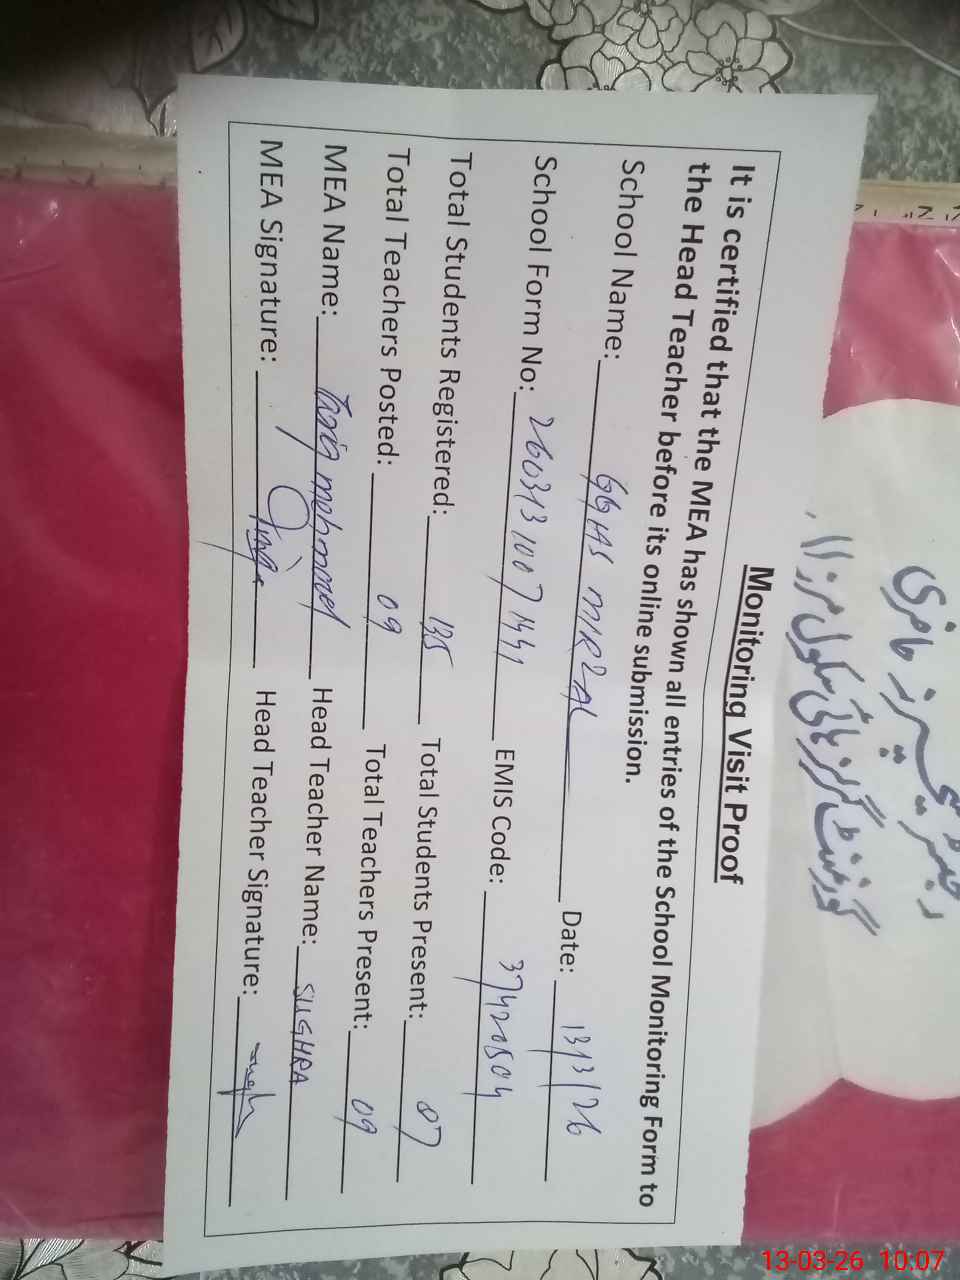 Monitoring Visit Proof
It is certified that the MEA has shown all entries of the School Monitoring Form to
the Head Teacher before its online submission.
School Name: GGHS MIRZAL Date: 13/3/26
School Form No: 2603131007 EMIS Code: 37420504
Total Students Registered: 135 Total Students Present: 07
Total Teachers Posted: 09 Total Teachers Present: 09
MEA Name: Tariq mehmood Head Teacher Name: SUGHRA
MEA Signature: Head Teacher Signature:
رجسٹر حاضری
گورنمنٹ گرلز ہائی سکول
13-03-26 10:07